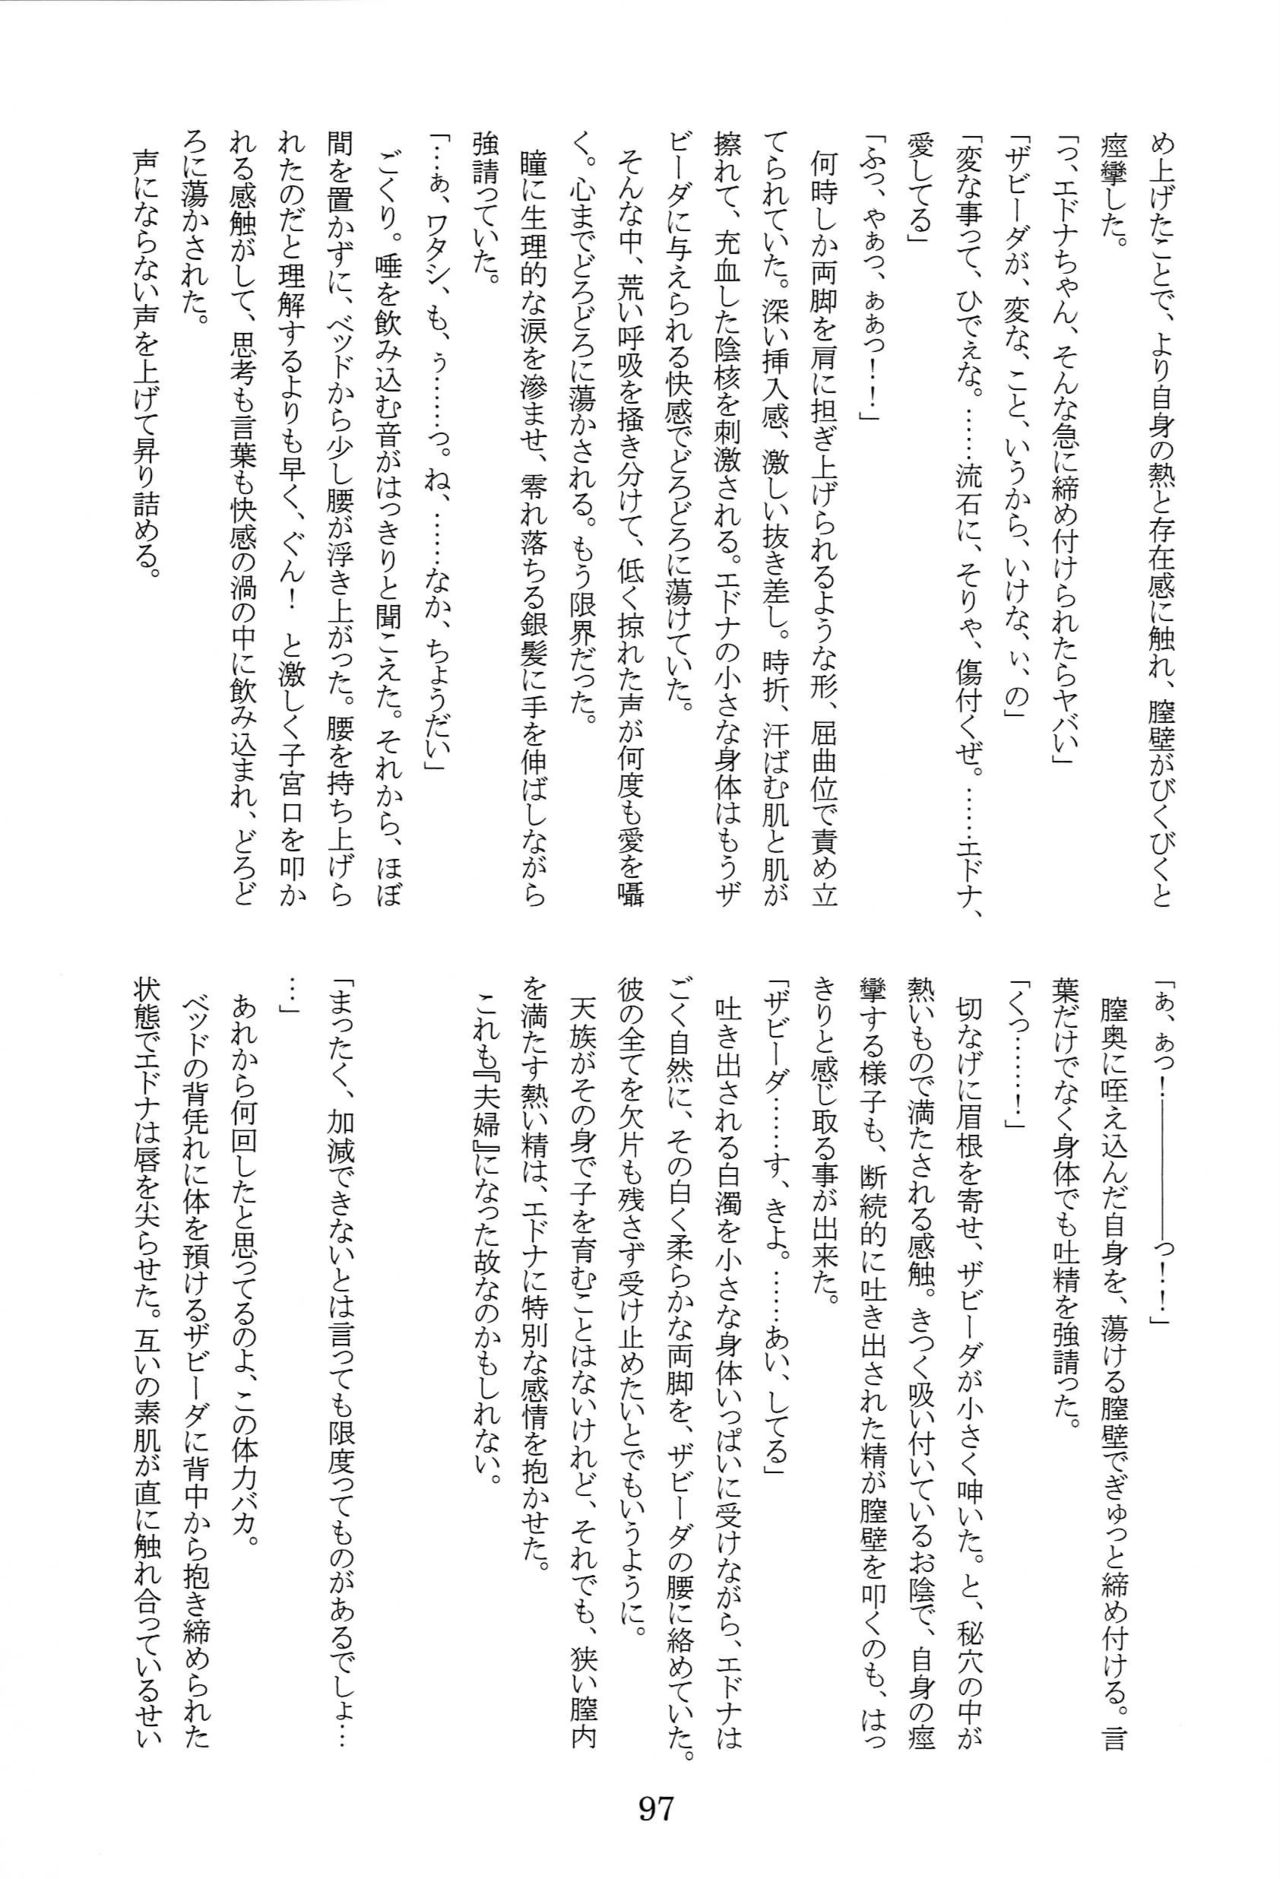 め上げたことで、より自身の熱と存在感に触れ、膣壁がびくびくと
痙攣した。
「っ、エドナちゃん、そんな急に締め付けられたらヤバい」
「ザビーダが、変な、こと、いうから、いけな、ぃ、の」
「変な事って、ひでぇな。……流石に、そりゃ、傷付くぜ。……エドナ、
愛してる」
「ふっ、ゃぁっ、ぁぁっ！！」
何時しか両脚を肩に担ぎ上げられるような形、屈曲位で責め立
てられていた。深い挿入感、激しい抜き差し。時折、汗ばむ肌と肌が
擦れて、充血した陰核を刺激される。エドナの小さな身体はもうザ
ビーダに与えられる快感でどろどろに蕩けていた。
そんな中、荒い呼吸を掻き分けて、低く掠れた声が何度も愛を囁
く。心までどろどろに蕩かされる。もう限界だった。
瞳に生理的な涙を滲ませ、零れ落ちる銀髪に手を伸ばしながら
強請っていた。
「…ぁ、ワタシ、も、ぅ……っ。ね、……なか、ちょうだい」
ごくり。唾を飲み込む音がはっきりと聞こえた。それから、ほぼ
間を置かずに、ベッドから少し腰が浮き上がった。腰を持ち上げら
れたのだと理解するよりも早く、ぐん！　と激しく子宮口を叩か
れる感触がして、思考も言葉も快感の渦の中に飲み込まれ、どろど
ろに蕩かされた。
声にならない声を上げて昇り詰める。
「ぁ、ぁっ！――――――っ！！」
膣奥に咥え込んだ自身を、蕩ける膣壁でぎゅっと締め付ける。言
葉だけでなく身体でも吐精を強請った。
「くっ………！」
切なげに眉根を寄せ、ザビーダが小さく呻いた。と、秘穴の中が
熱いもので満たされる感触。きつく吸い付いているお陰で、自身の痙
攣する様子も、断続的に吐き出された精が膣壁を叩くのも、はっ
きりと感じ取る事が出来た。
「ザビーダ……す、きよ。……あい、してる」
吐き出される白濁を小さな身体いっぱいに受けながら、エドナは
ごく自然に、その白く柔らかな両脚を、ザビーダの腰に絡めていた。
彼の全てを欠片も残さず受け止めたいとでもいうように。
天族がその身で子を育むことはないけれど、それでも、狭い膣内
を満たす熱い精は、エドナに特別な感情を抱かせた。
これも『夫婦』になった故なのかもしれない。
「まったく、加減できないとは言っても限度ってものがあるでしょ…
…」
あれから何回したと思ってるのよ、この体力バカ。
ベッドの背凭れに体を預けるザビーダに背中から抱き締められた
状態でエドナは唇を尖らせた。互いの素肌が直に触れ合っているせい
97